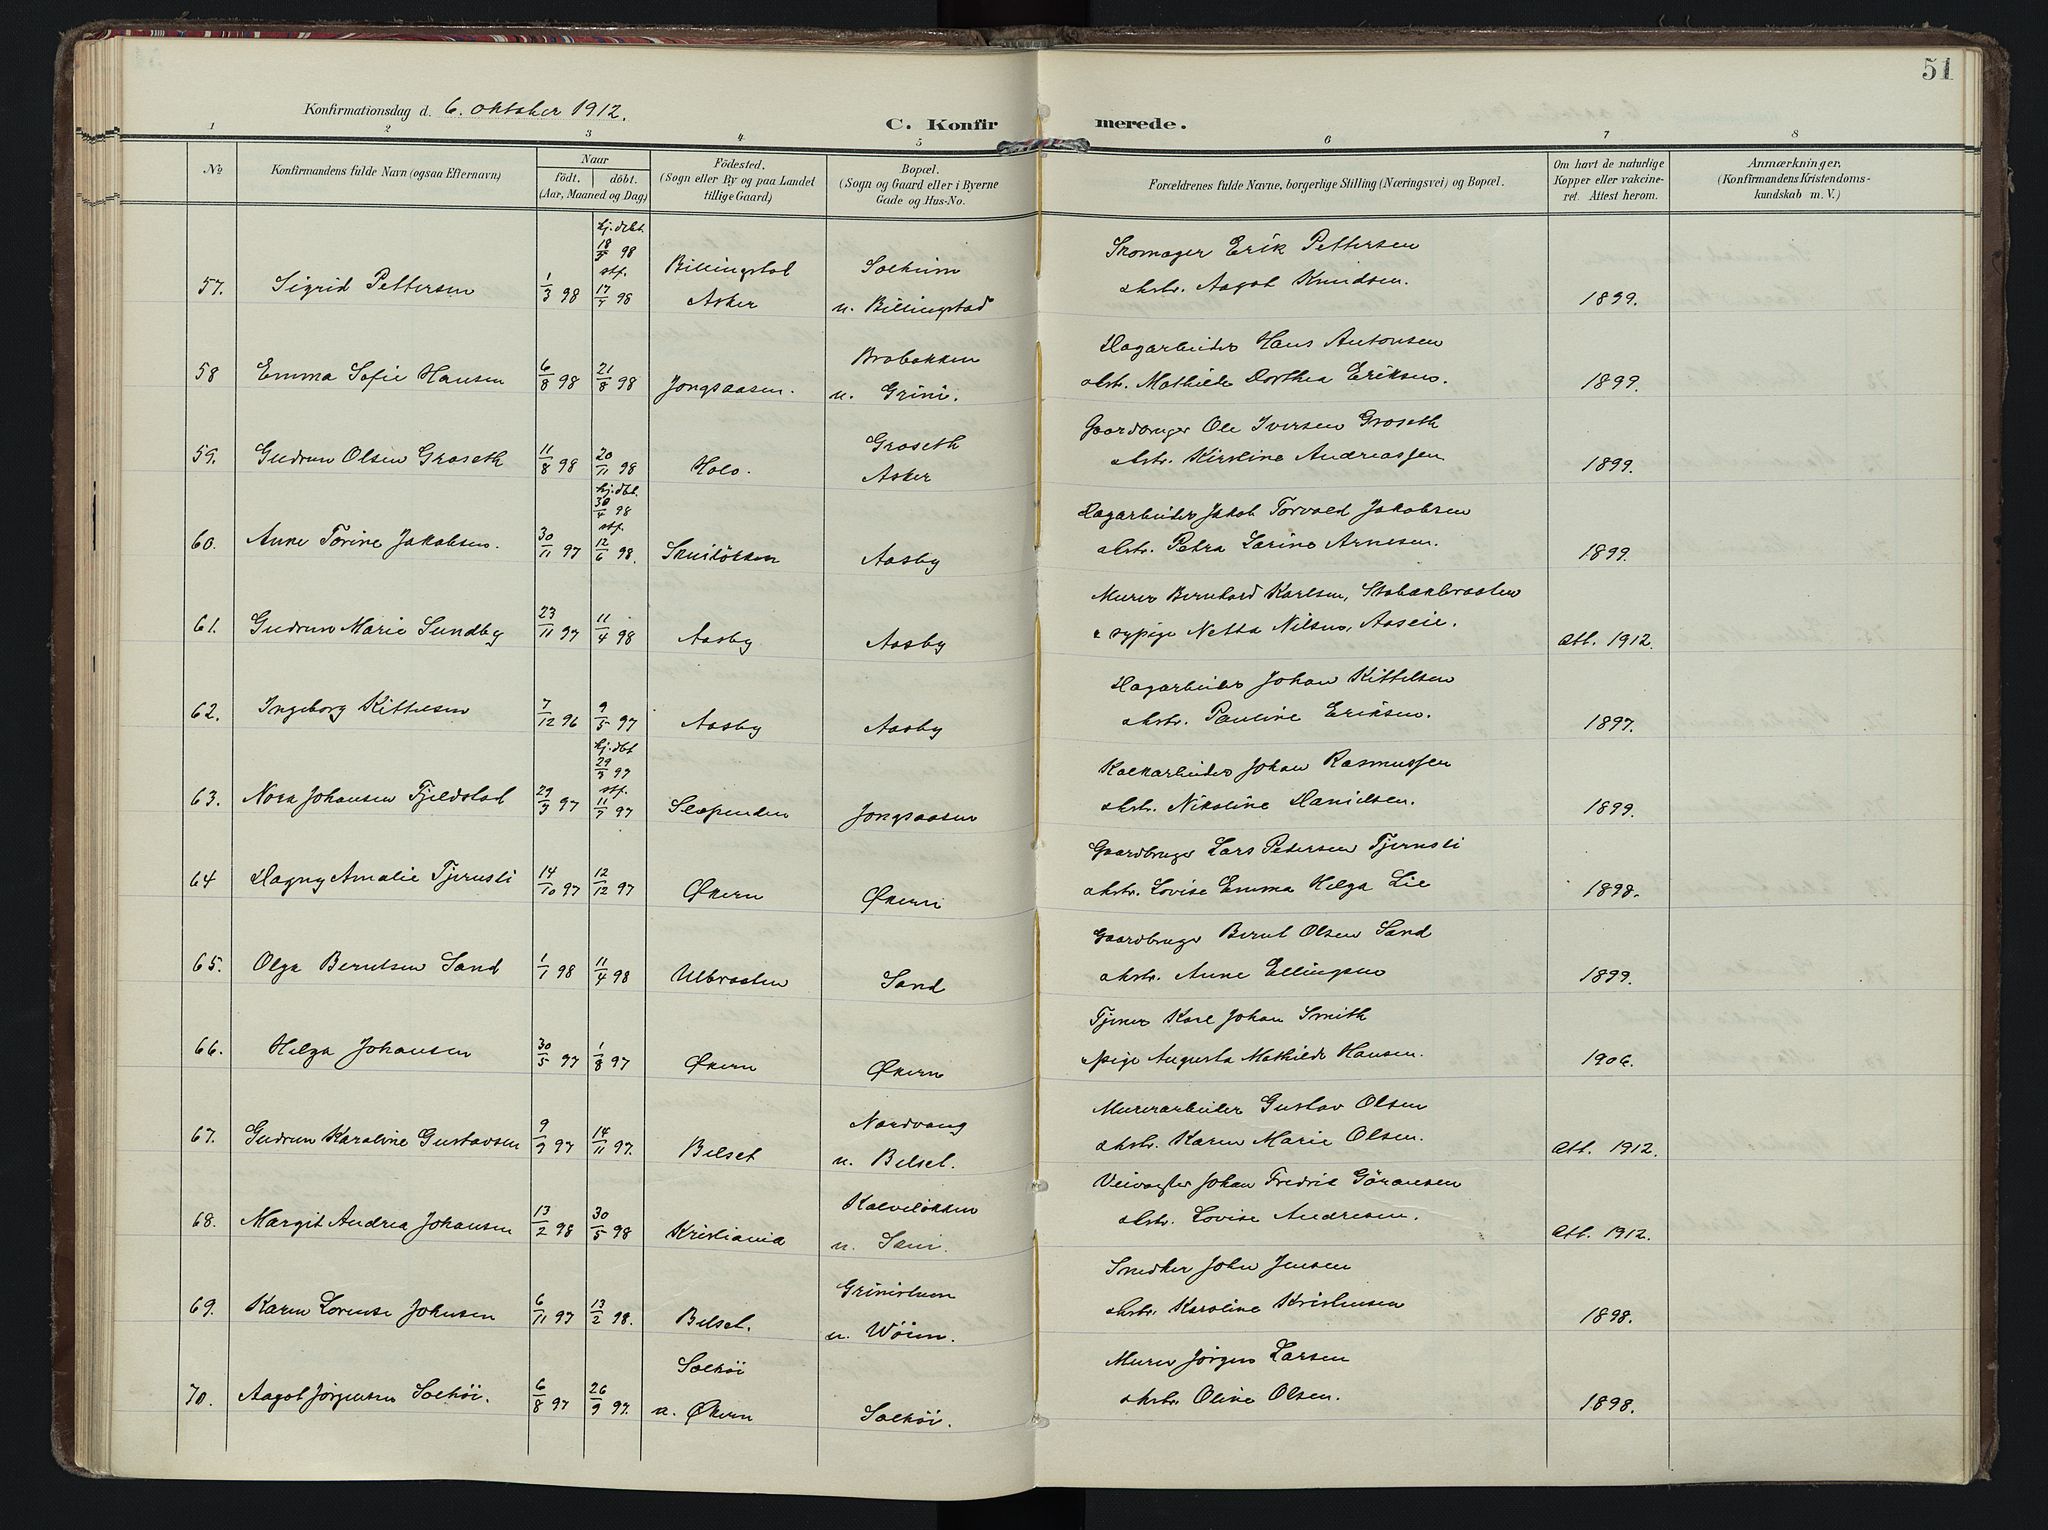 51
Konfirmationsdag d. 6. oktober 1912.
C. Konfirmerede.
1 2 3 4 5 6 7 8
No
Konfirmandens fulde Navn (ogsaa Efternavn)
Naar
födt. döbt.
(Aar, Maaned og Dag)
Födested.
(Sogn eller By og paa Landet
tillige Gaard)
Bopæl.
(Sogn og Gaard eller i Byerne
Gade og Hus-No.
Forældrenes fulde Navne, borgerlige Stilling (Næringsvei) og Bopæl.
Om havt de naturlige
Kopper eller vakcine-
ret. Attest herom.
Anmærkninger,
(Konfirmandens Kristendoms-
kundskab m. V.)
hj. dbt.
18/3 98
stf.
57. Sigrid Pettersen 1/3 98 17/7 98 Billingstad Asker Solheim u. Billingstad
Skomager Erik Pettersen
ehstr. Aagot Knudsen. 1899.
58 Emma Sofie Hansen 6/8 98 21/8 98 Jongsaasen. Brobakken u. Grini.
Dagarbeider Hans Antonsen
ehstr. Mathilde Dorthea Eriksen. 1899.
59. Gudrun Olsen Groseth 11/8 98 20/11 98 Holo. Groseth Asker
Gaardbruger Ole Iversen Groseth
ehstr. Kirstine Andreassen 1899.
hj. dbt.
30/4 98
stf.
60. Anne Torine Jakobsen. 30/11 97 12/6 98. Skuiløkken Aasby
Dagarbeider Jakob Torvald Jakobsen
ehstr. Petra Larine Arnesen. 1899.
61. Gudrun Marie Sundby 23/11 97 11/4 98 Aasby Aasby
Murer Bernhard Karlsen, Stabækbraaten
& sypige Netta Nilsen, Aaseie. att. 1912.
62. Ingeborg Kittelsen 7/12 96 9/5 97 Aasby Aasby
Dagarbeider Johan Kittelsen
ehstr. Pauline Eriksen. 1897.
hj. dbt
29/3 97
stf.
63. Nora Johansen Fjeldstad 29/3 97 11/7 97 Slependen Jongsaasen
Kalkarbeider Johan Rasmussen
ehstr. Nikoline Danielsen. 1899.
64 Dagny Amalie Tjernsli 14/10 97 12/12 97 Økern Økern
Gaardbruger Lars Petersen Tjernsli
ehstr. Lovise Emma Helga Lie 1898.
65. Olga Berntsen Sand 1/1 98 11/4 98 Ulbraaten Sand
Gaardbruger Bernt Olsen Sand
ehstr. Anne Ellingsen 1899.
66. Helga Johansen 30/5 97 1/8 97 Økern Økern
Tjener Karl Johan Smith
& pige Augusta Mathilde Hansen. 1906.
67. Gudrun Karoline Gustavsen 9/9 97 14/11 97. Belset Nordvang u. Belset.
Murerarbeider Gustav Olsen
ehstr. Karen Marie Olsen. att. 1912.
68. Margit Andrea Johansen 13/2 98 30/5 98 Kristiania Kalveløkken u. Tani.
Veivogter Johan Fredrik Göransen
ehstr. Lovise Andresen. att. 1912.
69. Karen Lorense Johnsen 6/11 97 13/2 98. Belset. Grinistuen u. Wöien.
Snedker John Jensen
ehstr. Karoline Kristensen 1898.
70. Aagot Jørgensen Solhöi. 6/8 97 26/9 97. Solhöi u. Økern Solhöi.
Murer Jörgen Larsen
ehstr. Oline Olsen. 1898.